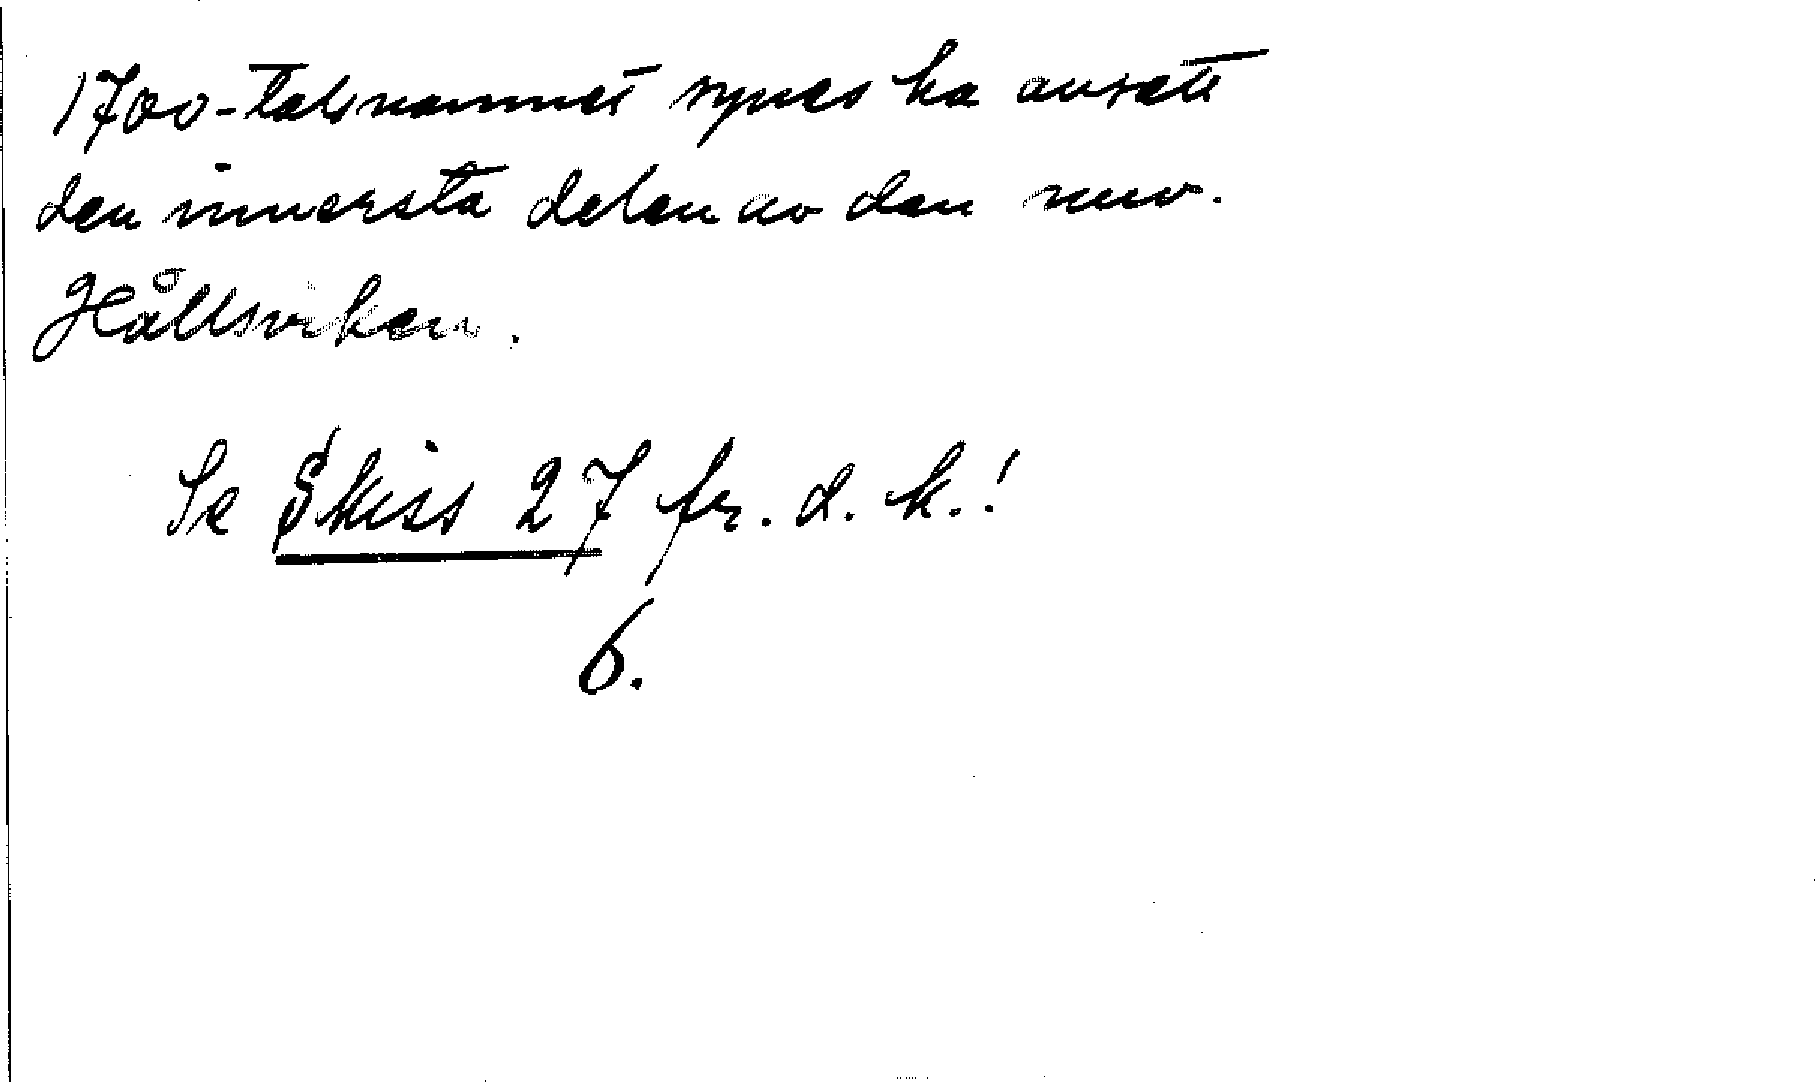 1700-talsnamnet synes ha avsett
den innersta delen av den nuv.
Hållsviken.
Se Skiss 27 fr. d. k.!
6.